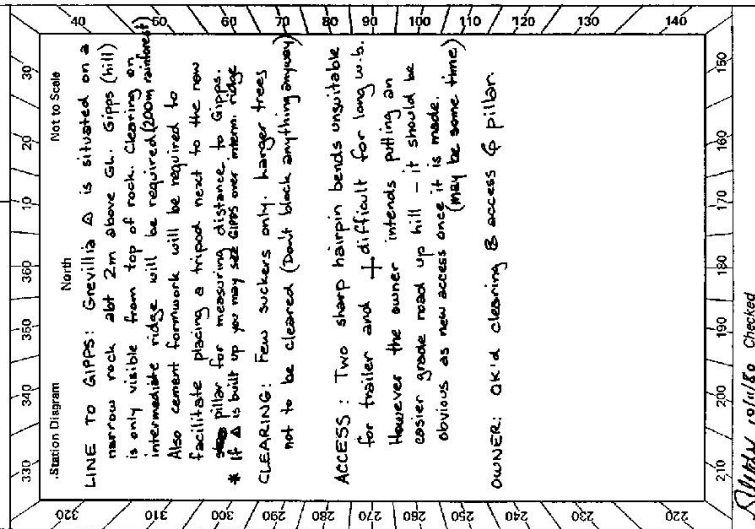 330 340 350 360 10 20 30
Station Diagram North Not to Scale
320 310 300 290 280 270 260 250 240 230 220
40 50 60 70 80 90 100 110 120 130 140
LINE TO GIPPS: Grevillia △ is situated on a
narrow rock abt 2m above GL. Gipps (hill)
is only visible from top of rock. Clearing on
intermediate ridge will be required (200m rainforest)
Also cement formwork will be required to
facilitate placing a tripod next to the now
pillar for measuring distance to Gipps.
* If △ is built up you may see GIPPS over interm. ridge
CLEARING: Few suckers only. Larger trees
not to be cleared (Don't block anything anyway)
ACCESS: Two sharp hairpin bends unsuitable
for trailer and difficult for long w.b.
However the owner intends putting an
easier grade road up hill - it should be
obvious as new access once it is made.
(may be some time)
OWNER: OK'd clearing & access & pillar.
210 200 190 180 170 160 150
10/11/80 Checked